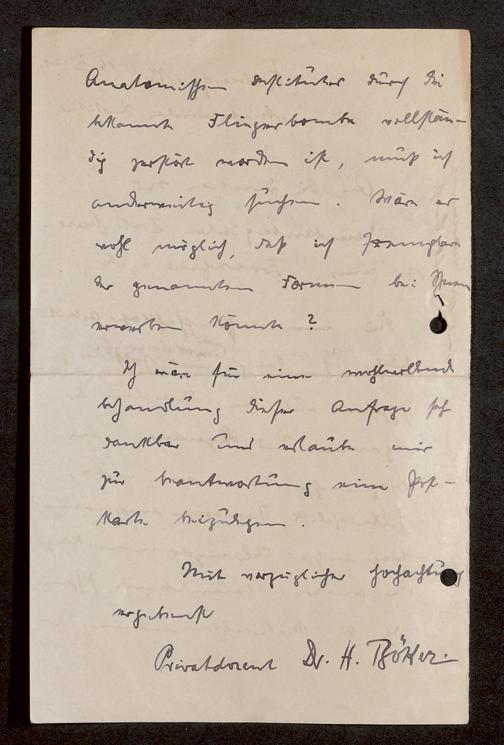 Anatomischen Institutes durch die
bekannte Fliegerbombe vollstän-
dig zerstört worden ist, muß ich
anderweitig suchen. Wäre es
wohl möglich, daß ich Exemplare
der genannten Formen bei Ihnen
erwerben könnte?
Ich wäre für eine wohlwollende
Behandlung dieser Anfrage sehr
dankbar und erlaube mir
zur Beantwortung eine Post-
karte beizulegen.
Mit vorzüglicher Hochachtung
ergebenst
Privatdozent Dr. H. Böker.